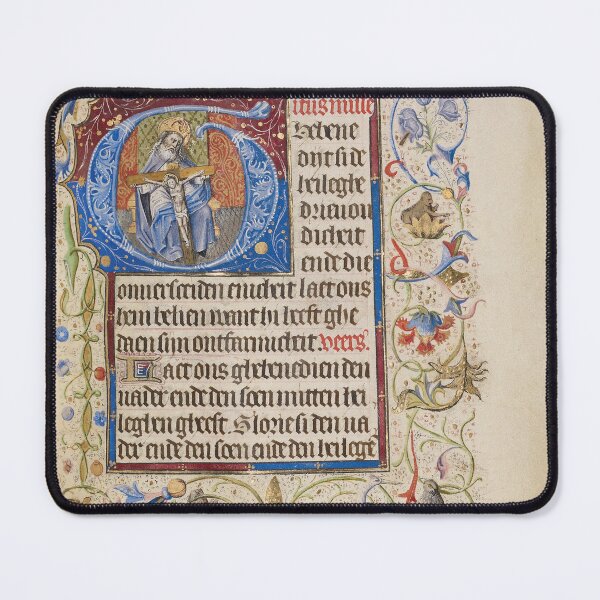 itus misse
Ghebene
dijt si de
heileghe
drieuou
dicheit
ende die
onuersceiden enicheit laet ons
hem belien want hi heeft ghe
daen sijn ontfarmicheit vers.
Laet ons ghebenedien den
vader ende den soen metten hei
leghen gheest. Glorie si den va
der ende den soen ende den heileghē